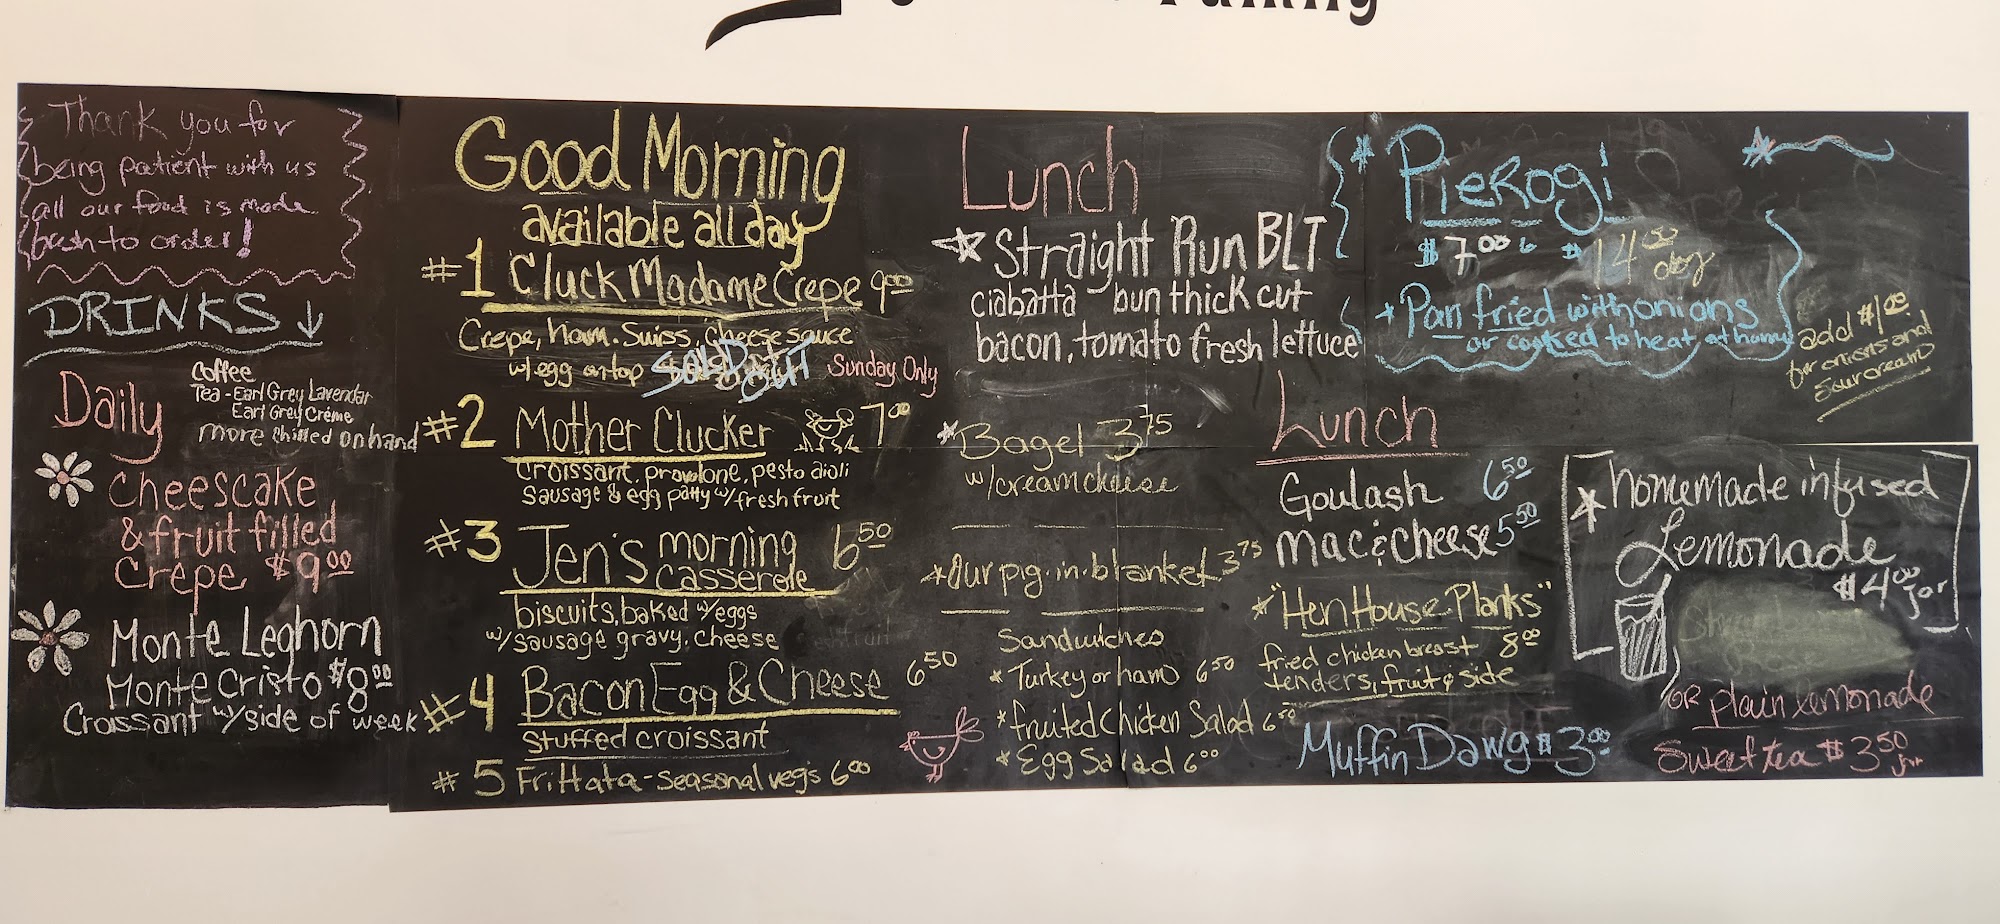 Family
Thank you for
being patient with us
all our food is made
fresh to order!
DRINKS ↓
Daily
coffee
Tea - Earl Grey Lavendar
Earl Grey Créme
more chilled on hand
cheescake
& fruit filled
crepe $9.00
Monte Leghorn
Monte Cristo $8.00
Croissant w/side of week
Good Morning
available all day
#1 Cluck Madame Crepe 9.00
Crepe, ham. Swiss, cheese sauce
w/egg on top
SOLD OUT
Sunday Only
#2 Mother Clucker 7.00
croissant, provolone, pesto aioli
Sausage & egg patty w/fresh fruit
#3 Jen's morning casserole 6.50
biscuits, baked w/eggs
w/sausage gravy, cheese
#4 Bacon Egg & Cheese 6.50
stuffed croissant
#5 Frittata - seasonal vegs 6.00
Lunch
Straight Run BLT
ciabatta bun thick cut
bacon, tomato fresh lettuce
*Bagel 3.75
w/creamcheese
*Our pig-in-blanket 3.75
Sandwiches
*Turkey or ham 6.50
*fruited Chicken Salad 6.50
*Egg Salad 6.00
*Pierogi
$7.00 6 $14.00 doz
*Pan fried with onions
or cooked to heat at home
add $1.00
for onions and
sour cream
Lunch
Goulash 6.50
mac & cheese 5.50
*"Hen House Planks"
fried chicken breast 8.00
tenders, fruit & side
Muffin Dawg $3.00
*homemade infused
Lemonade
$4.00 jar
or plain lemonade
Sweet tea $3.50 jar